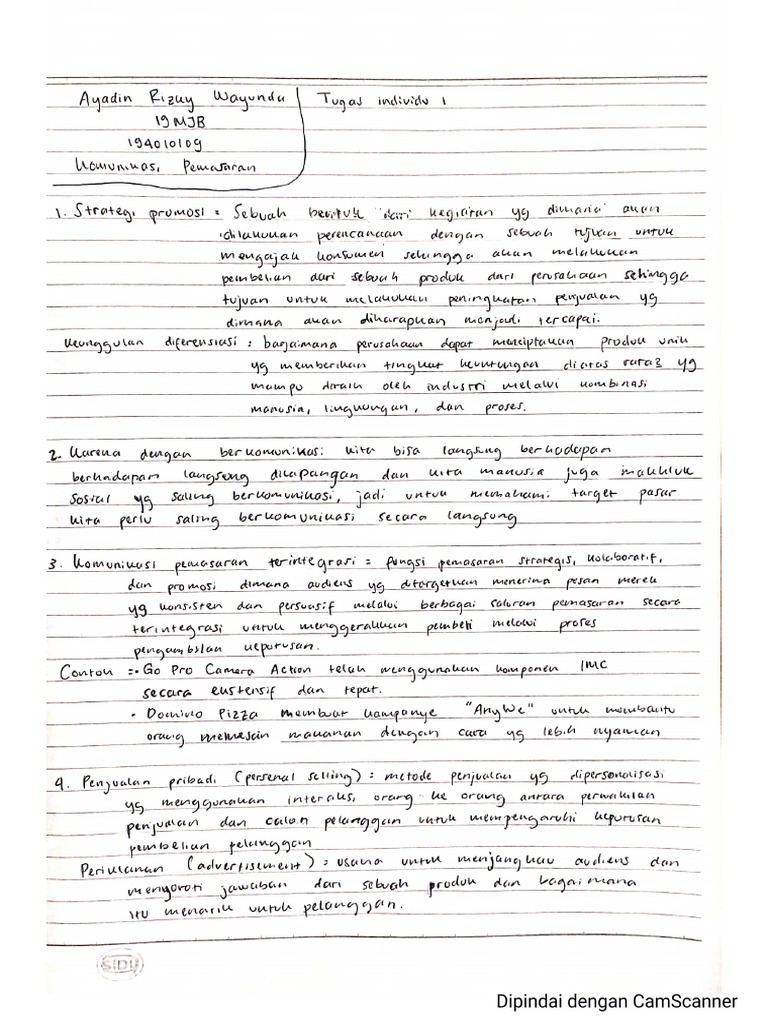 Ayadin Rizuy Wayundu
Tugas individu 1
19MJB
194010109
Komunikasi Pemasaran
1. Strategi promosi = Sebuah bentuk dari kegiatan yg dimana akan
dilakukan perencanaan dengan sebuah tujuan untuk
mengajak konsumen sehingga akan melakukan
pembelian dari sebuah produk dari perusahaan sehingga
tujuan untuk melakukan peningkatan penjualan yg
dimana akan diharapkan menjadi tercapai.
Keunggulan diferensiasi : bagaimana perusahaan dapat menciptakan produk unik
yg memberikan tingkat keuntungan diatas rata2 yg
mampu diraih oleh industri melalui kombinasi
manusia, lingkungan, dan proses.
2. Karena dengan berkomunikasi kita bisa langsung berhadapan
berhadapan langsung dilapangan dan kita manusia juga makhluk
sosial yg saling berkomunikasi, jadi untuk memahami target pasar
kita perlu saling berkomunikasi secara langsung
3. Komunikasi pemasaran terintegrasi = fungsi pemasaran strategis, kolaboratif,
dan promosi dimana audiens yg ditargetkan menerima pesan merek
yg konsisten dan persuasif melalui berbagai saluran pemasaran secara
terintegrasi untuk menggerakkan pembeli melalui proses
pengambilan keputusan.
Contoh =• Go Pro Camera Action telah menggunakan komponen IMC
secara ekstensif dan tepat.
• Domino Pizza membuat kampanye "AnyWe" untuk membantu
orang memesan makanan dengan cara yg lebih nyaman
4. Penjualan pribadi (personal selling) = metode penjualan yg dipersonalisasi
yg menggunakan interaksi orang ke orang antara perwakilan
penjualan dan calon pelanggan untuk mempengaruhi keputusan
pembelian pelanggan
Periklanan (advertisement) = usaha untuk menjangkau audiens dan
menyoroti jawaban dari sebuah produk dan bagaimana
itu menarik untuk pelanggan.
SIDU
Dipindai dengan CamScanner